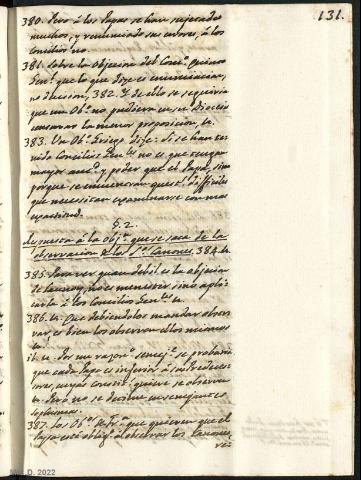 131.
380. Pero á los Papas se han sujetado
muchos, y renunciado sus errores, á los
concilios no.
381. Sobre la objecion del Conc.º Quinto
Gen.l que lo que dize es enunciacion,
no decision, 382. Y de ello se seguiria
que un Ob.º no pudiera en su Diocesis
condenar la menor proposicion, &.
383. Un Ob.º Griego dize: si se han te-
nido Concilios Gen.les no es que tengan
mayor aut.d y poder que el Papa, sino
porque se mueven quest.s dificiles
que necesitan examinarse con mas
exactitud.
§. 2.
Respuesta á la obj.n que se saca de la
observacion de los S.tos Canones, 384. &.
385. Para ver quan debil es la objecion
de Launoy, no es menester sino aplic-
carla á los Concilios Gen.les &.
386. &. Que debiendolos mandar obser-
var, es bien los observen ellos mismos
&.
it. &. Por una razon semej.te se probaria
que cada Papa es inferior á sus Predeceso-
res, cuyas constit.s quiere se observen
&. Pero no se deciden en semejantes
387. Los Ob.s de Fr.a que quieren que el
Papa está oblig.do á observar los Canones